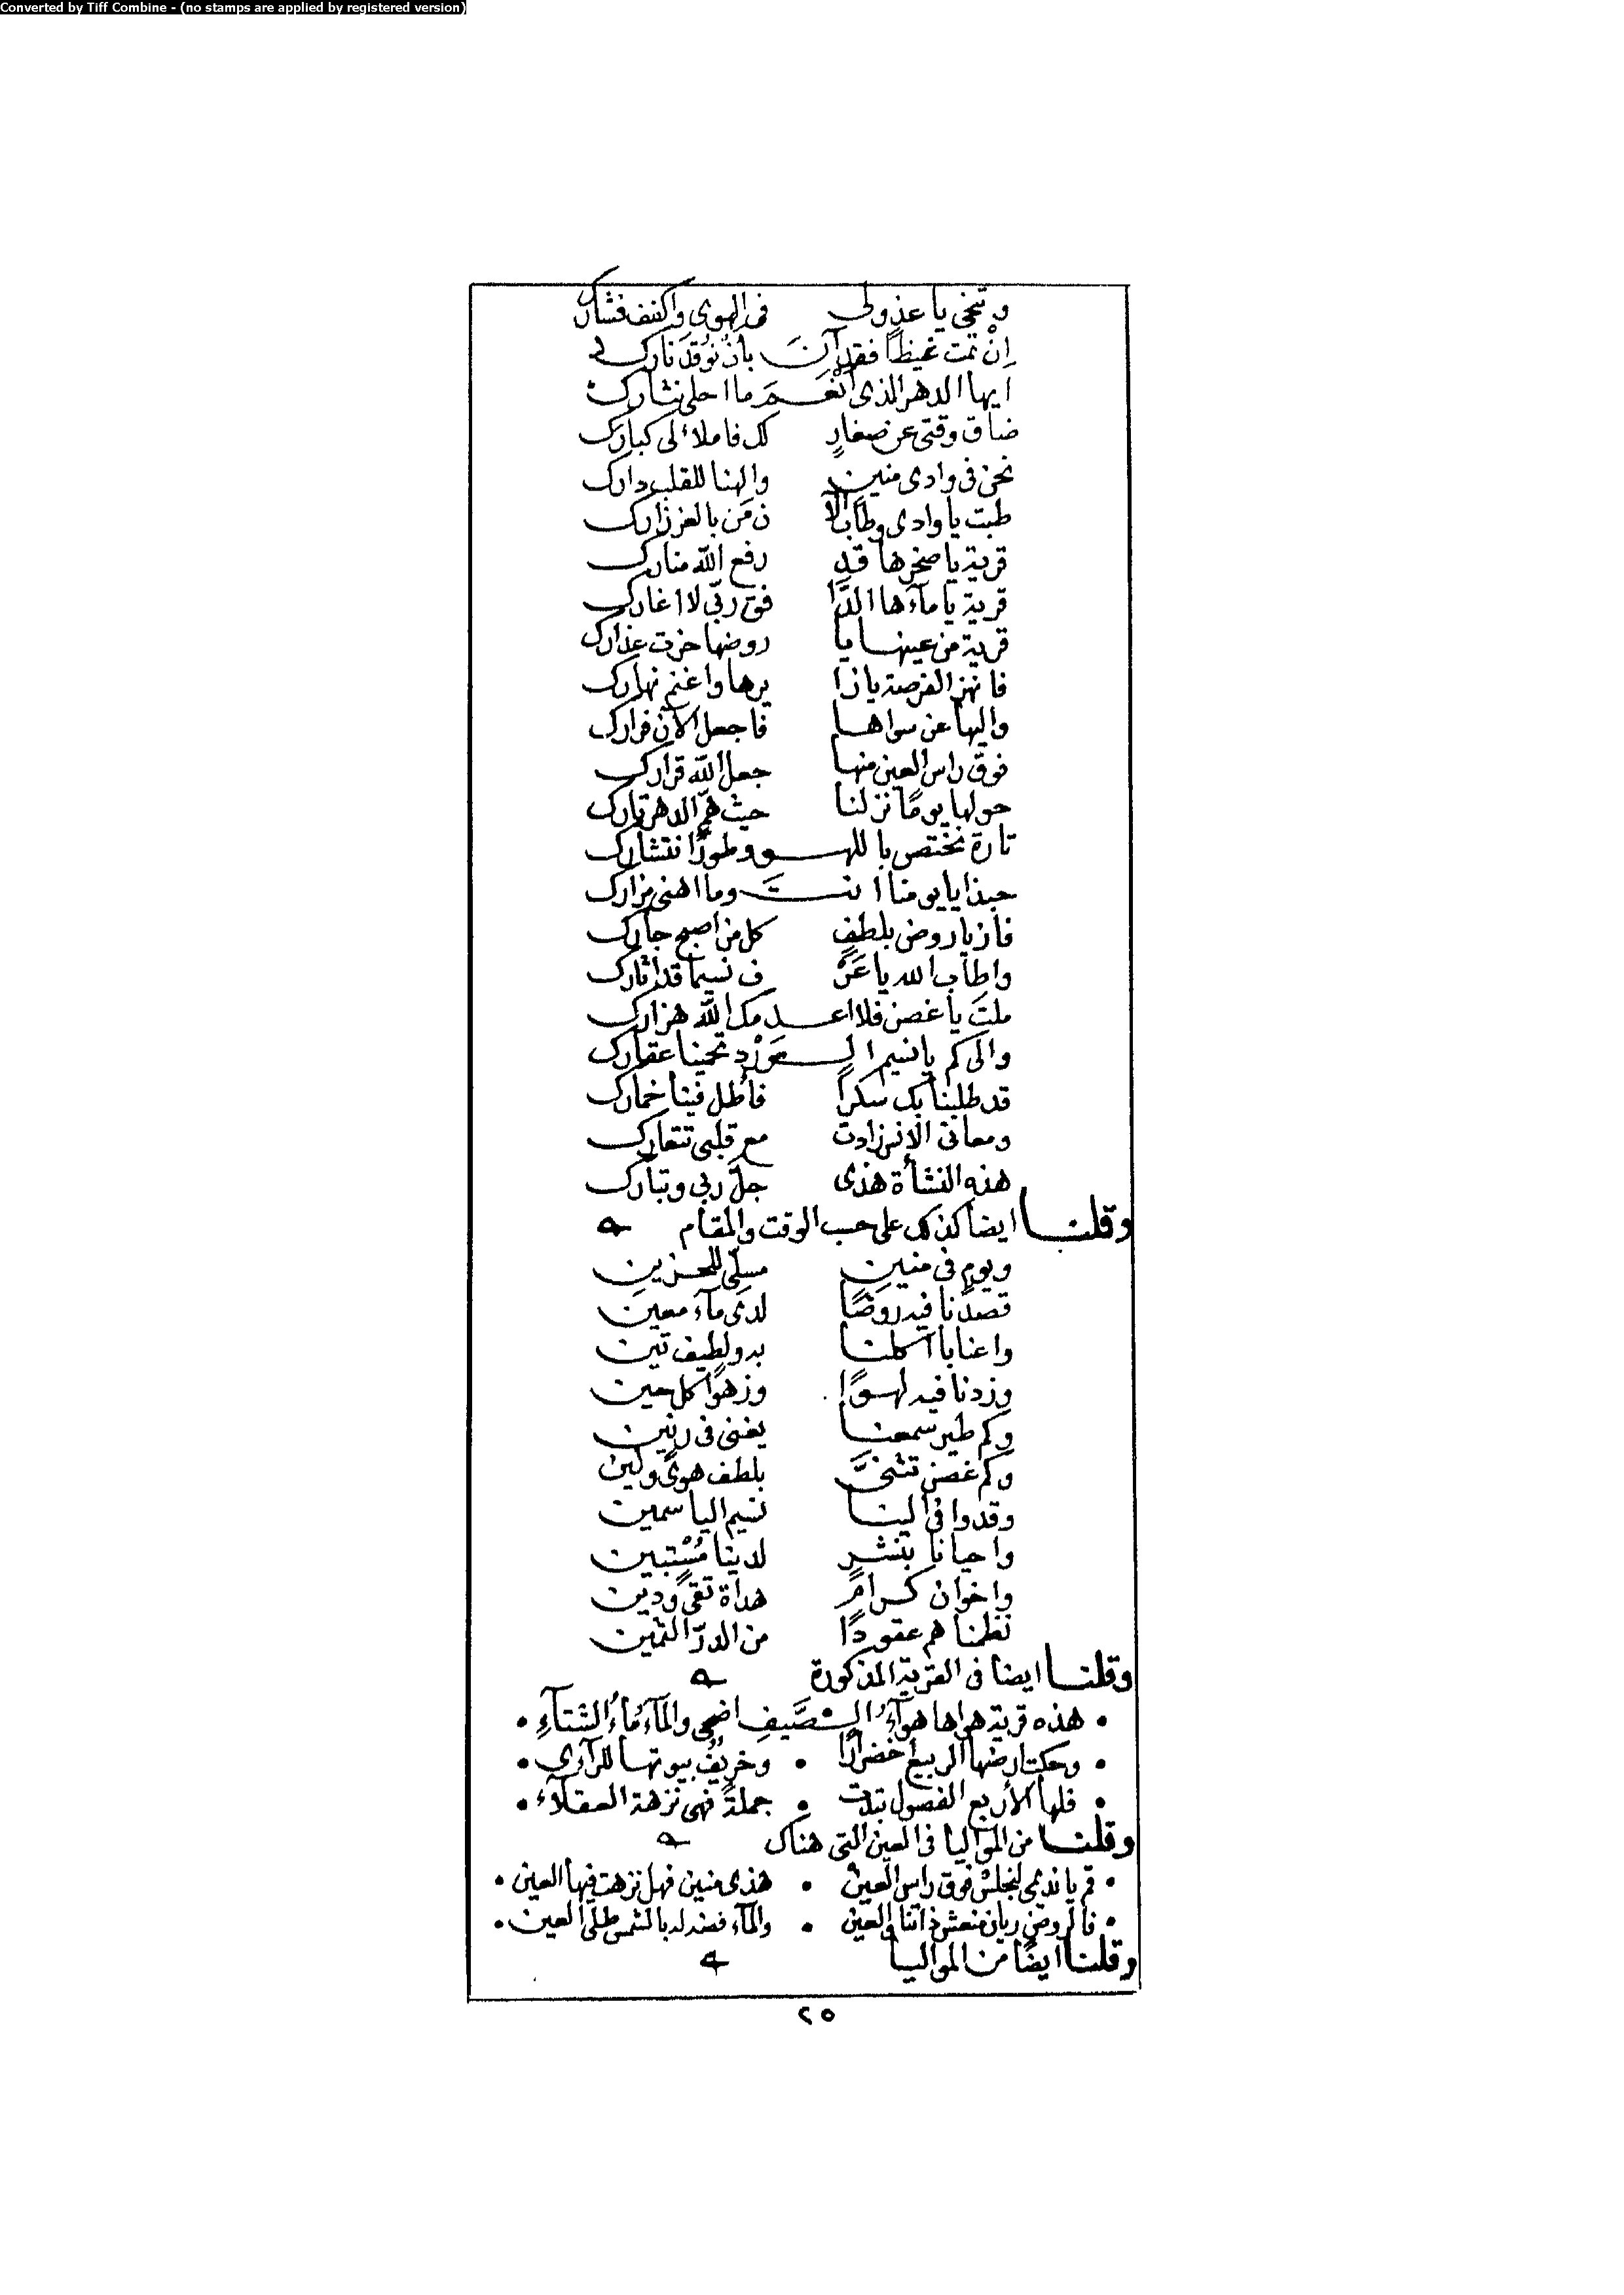 Converted by Tiff Combine - (no stamps are applied by registered version)
وتنحى يا عذولى في الهوى واكفف
إنْ تمت غيظًا فقد آنَ بأن توقد نارك
ايها الدهر الذى أنْعَمَ ما احلى نثارك
ضاق وقتى عن صغارٍ لك فاملاء لى كبارك
نحن فى وادى منين والهنا للقلب دارك
طبت يا وادى وطاب الآ ن مَن بالعز زارك
قرية يا صخرها قد رفع الله منارك
قرية يا مآءها الدَّا فق ربّى لا اغارك
قرية من عينها يا روضها حزت عذارك
فانهز الفرصة يا زا يرها واغنم نهارك
واليها عن سواها فاجعل الآن فرارك
فوق راس العين منها جعل الله قرارك
حولها يومًا نزلنا حيث همّ الدهر تارك
تارة نختص باللهو وطورًا نتشارك
حبذا يا يومنا انتَ وما اهنى مزارك
فاز يا روض بلطفٍ كل من اصبح جارك
واطاب الله يا عَرْ ف نسيما قد اثارك
ملتَ يا غصن فلا اعدمك الله هزارك
والى كم يا نسيم الوَرْد تحيينا عقارك
قد طلبنا بك سكرًا فأطل فينا خمارك
ومعانى الانس زادت مع قلبى تتعارك
هذه النشأة هذى جلّ ربى وتبارك
وقلنا ايضا كذلك على حسب الوقت والمقام
ويومٍ فى منينِ مسلّى للحزينِ
قصدنا فيه روضًا لدى مآء معين
واعنابا اكلنا به ولطيف تين
وزدنا فيه لهوًا وزهوًا كل حين
وكم طير سمعنا يغنى فى رنين
وكم غصن تثنىَّ بلطف هوىً ولين
وقد وافى الينا نسيم الياسمين
واحيانا بنشرٍ لدينا مُسْتبين
واخوان كرامٍ هداة تقىً ودين
نظمنا هم عقودًا من الدرّ الثمين
وقلنا ايضا فى القرية المذكورة
• هذه قرية هواها هوآءُ الـصَّيفِ اضحى والمآءُ مآءُ الشتآءِ •
• وحكت ارضها الربيع اخضرارًا • وخريفٌ بيوتها للرآءى •
• فلها الأربع الفصول تبدّت • جملةً فهى نزهة العقلآء •
وقلنا من المواليا فى العين التى هناك
• قم يا نديمى لنجلس فوق راس العين • هذى منين فهل نزهت فيها العين •
• فالروض ريان منعش ذاتنا والعين • والمآء فضه له بالشمس طلى العين •
وقلنا ايضًا من المواليا
٢٥